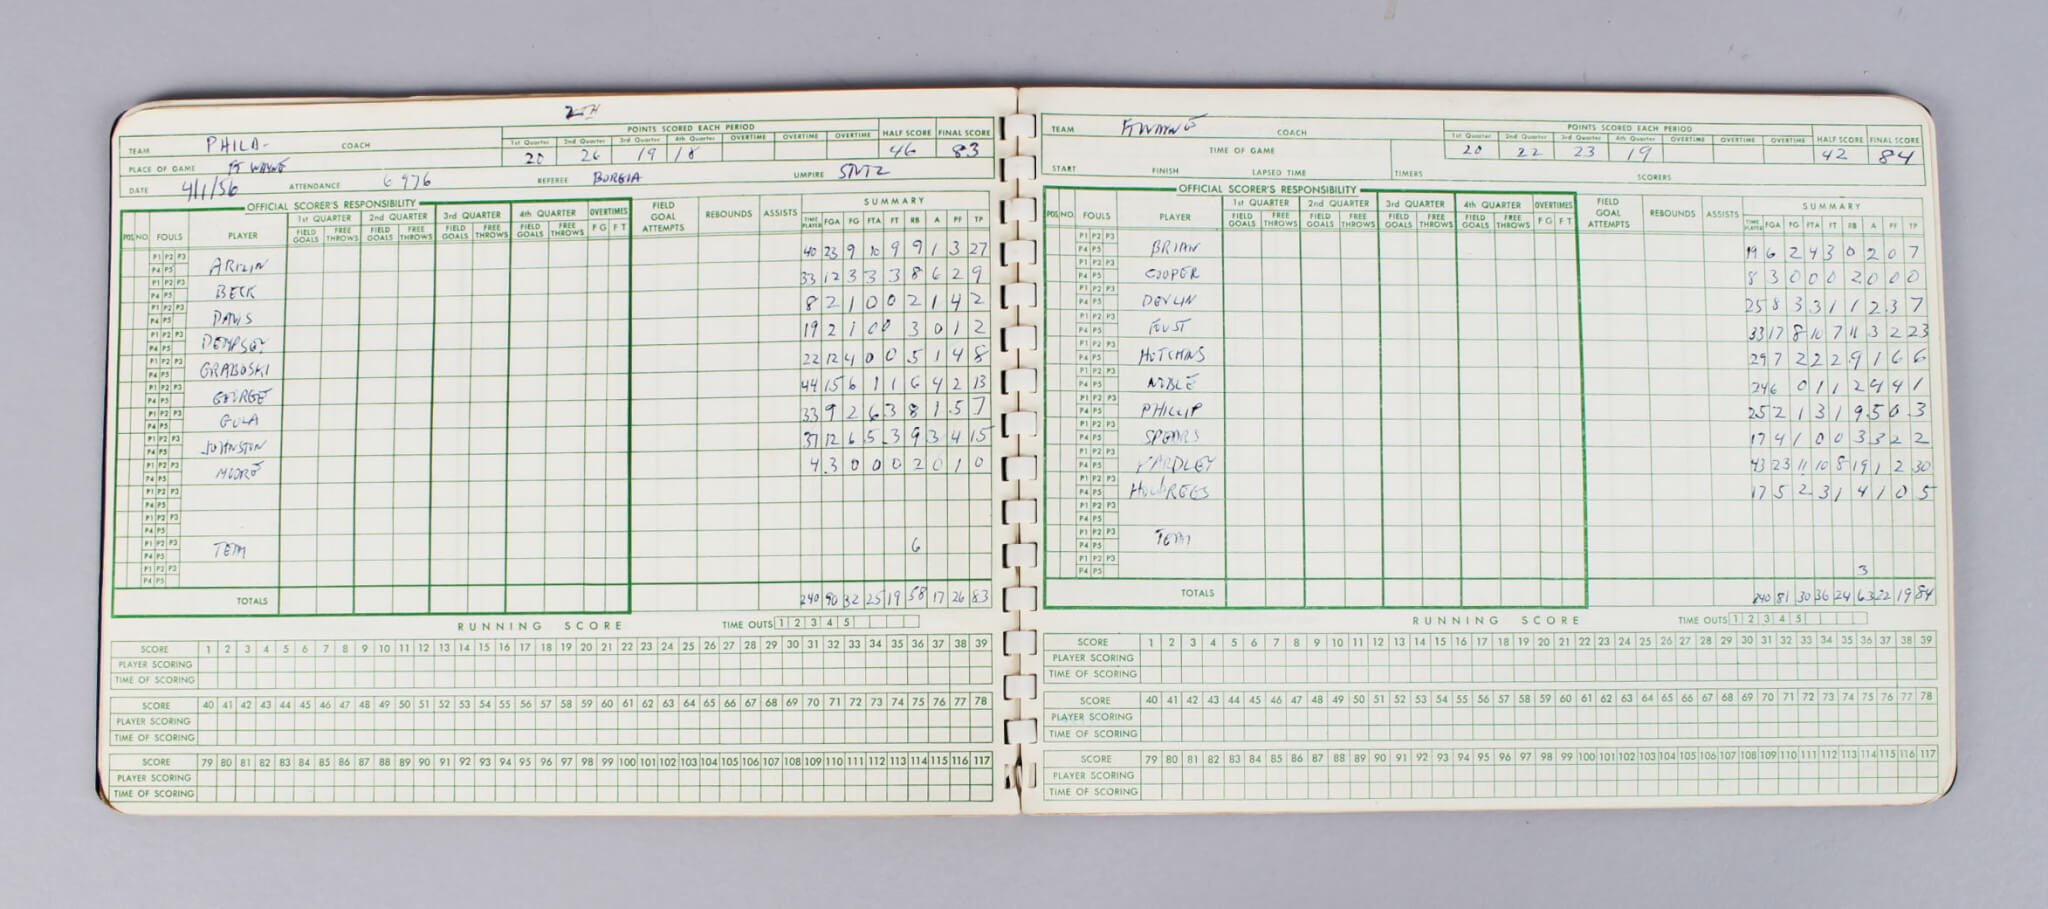 2TH
POINTS SCORED EACH PERIOD
TEAM PHILA- COACH 1st Quarter 2nd Quarter 3rd Quarter 4th Quarter OVERTIME OVERTIME OVERTIME HALF SCORE FINAL SCORE
20 26 19 18 46 83
PLACE OF GAME FT WAYNE
DATE 4/1/56 ATTENDANCE 6976 REFEREE BORGIA UMPIRE
OFFICIAL SCORER'S RESPONSIBILITY SUMMARY
POS. NO. FOULS PLAYER 1st QUARTER 2nd QUARTER 3rd QUARTER 4th QUARTER OVERTIMES FIELD GOAL ATTEMPTS REBOUNDS ASSISTS
FIELD GOALS FREE THROWS FIELD GOALS FREE THROWS FIELD GOALS FREE THROWS FIELD GOALS FREE THROWS F G F T TIME PLAYED FGA FG FTA FT RB A PF TP
P1 P2 P3 P4 P5 ARIZIN 40 23 9 10 9 9 1 3 27
P1 P2 P3 P4 P5 BECK 33 12 3 3 3 8 6 2 9
P1 P2 P3 P4 P5 DAVIS 8 2 1 0 0 2 1 4 2
P1 P2 P3 P4 P5 DEMPSEY 19 2 1 0 0 3 0 1 2
P1 P2 P3 P4 P5 GRABOSKI 22 12 4 0 0 5 1 4 8
P1 P2 P3 P4 P5 GEORGE 44 15 6 1 1 6 4 2 13
P1 P2 P3 P4 P5 GOLA 33 9 2 6 3 8 1 5 7
P1 P2 P3 P4 P5 JOHNSTON 37 12 6 5 3 9 3 4 15
P1 P2 P3 P4 P5 MOORE 4 3 0 0 0 2 0 1 0
P1 P2 P3 P4 P5
P1 P2 P3 P4 P5
P1 P2 P3 P4 P5 TEAM 6
P1 P2 P3 P4 P5
TOTALS 240 90 32 25 19 58 17 26 83
RUNNING SCORE TIME OUTS 1 2 3 4 5
SCORE 1 2 3 4 5 6 7 8 9 10 11 12 13 14 15 16 17 18 19 20 21 22 23 24 25 26 27 28 29 30 31 32 33 34 35 36 37 38 39
PLAYER SCORING
TIME OF SCORING
SCORE 40 41 42 43 44 45 46 47 48 49 50 51 52 53 54 55 56 57 58 59 60 61 62 63 64 65 66 67 68 69 70 71 72 73 74 75 76 77 78
PLAYER SCORING
TIME OF SCORING
SCORE 79 80 81 82 83 84 85 86 87 88 89 90 91 92 93 94 95 96 97 98 99 100 101 102 103 104 105 106 107 108 109 110 111 112 113 114 115 116 117
PLAYER SCORING
TIME OF SCORING
POINTS SCORED EACH PERIOD
TEAM FT WAYNE COACH 1st Quarter 2nd Quarter 3rd Quarter 4th Quarter OVERTIME OVERTIME OVERTIME HALF SCORE FINAL SCORE
TIME OF GAME 20 22 23 19 42 84
START FINISH LAPSED TIME TIMERS SCORERS
OFFICIAL SCORER'S RESPONSIBILITY SUMMARY
POS. NO. FOULS PLAYER 1st QUARTER 2nd QUARTER 3rd QUARTER 4th QUARTER OVERTIMES FIELD GOAL ATTEMPTS REBOUNDS ASSISTS
FIELD GOALS FREE THROWS FIELD GOALS FREE THROWS FIELD GOALS FREE THROWS FIELD GOALS FREE THROWS F G F T TIME PLAYED FGA FG FTA FT RB A PF TP
P1 P2 P3 P4 P5 BRIAN 19 6 2 4 3 0 2 0 7
P1 P2 P3 P4 P5 COOPER 8 3 0 0 0 2 0 0 0
P1 P2 P3 P4 P5 DEVLIN 25 8 3 3 1 1 2 3 7
P1 P2 P3 P4 P5 FOUST 33 17 8 10 7 11 3 2 23
P1 P2 P3 P4 P5 HUTCHINS 29 7 2 2 2 9 1 6 6
P1 P2 P3 P4 P5 NOBLE 24 6 0 1 1 2 9 4 1
P1 P2 P3 P4 P5 PHILLIP 25 2 1 3 1 9 5 0 3
P1 P2 P3 P4 P5 SPEARS 17 4 1 0 0 3 3 2 2
P1 P2 P3 P4 P5 YARDLEY 43 23 11 10 8 19 1 2 30
P1 P2 P3 P4 P5 HOUBREGS 17 5 2 3 1 4 1 0 5
P1 P2 P3 P4 P5
P1 P2 P3 P4 P5 TEAM
P1 P2 P3 P4 P5 3
TOTALS 240 81 30 36 24 63 22 19 84
RUNNING SCORE TIME OUTS 1 2 3 4 5
SCORE 1 2 3 4 5 6 7 8 9 10 11 12 13 14 15 16 17 18 19 20 21 22 23 24 25 26 27 28 29 30 31 32 33 34 35 36 37 38 39
PLAYER SCORING
TIME OF SCORING
SCORE 40 41 42 43 44 45 46 47 48 49 50 51 52 53 54 55 56 57 58 59 60 61 62 63 64 65 66 67 68 69 70 71 72 73 74 75 76 77 78
PLAYER SCORING
TIME OF SCORING
SCORE 79 80 81 82 83 84 85 86 87 88 89 90 91 92 93 94 95 96 97 98 99 100 101 102 103 104 105 106 107 108 109 110 111 112 113 114 115 116 117
PLAYER SCORING
TIME OF SCORING